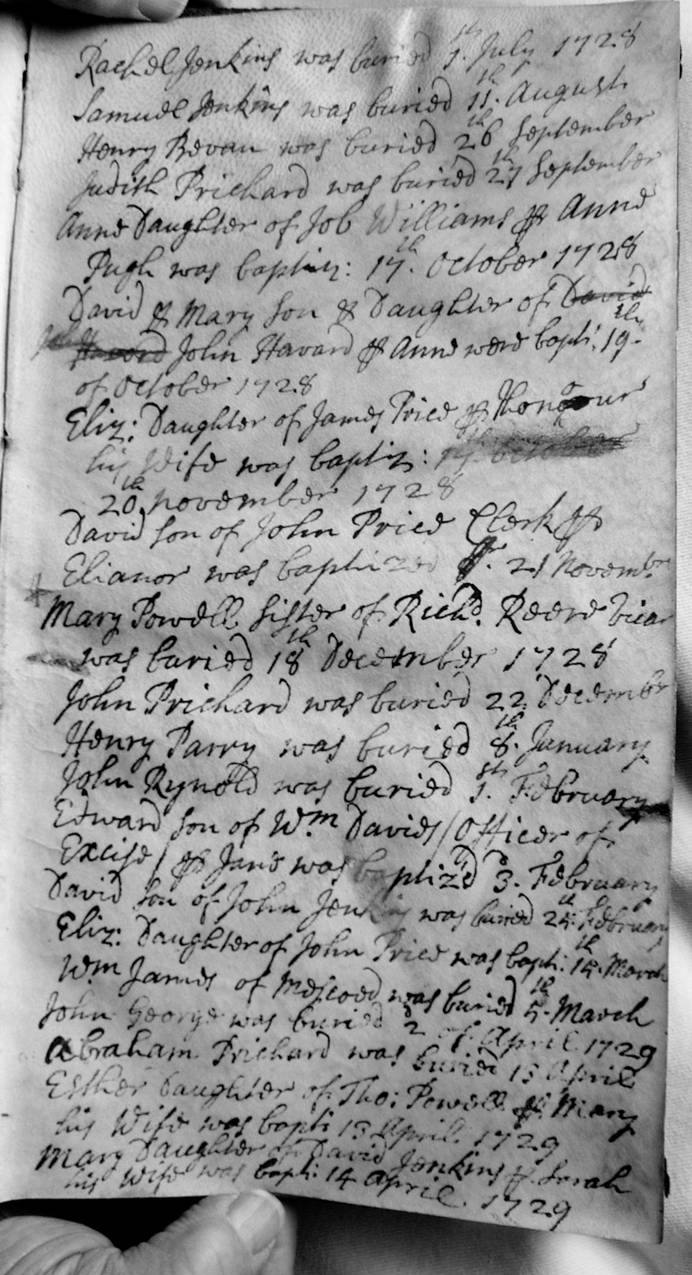 Rachel Jenkins was buried 1st July 1728
Samuel Jenkins was buried 11th August
Henry Bevan was buried 26th September
Judith Prichard was buried 27th September
Anne Daughter of Job Williams & Anne
Pugh was baptiz: 17th October 1728
David & Mary Son & Daughter of David
Havard John Havard & Anne were bapt: 19th
of October 1728
Eliz: Daughter of James Price & Honour
his Wife was baptiz: 17 October
20th november 1728
David Son of John Price Clerk &
Elianor was baptized 21 Novembr
Mary Powell Sister of Richd. Reece Vicar
was buried 18th December 1728
John Prichard was buried 22 December
Henry Parry was buried 8th January
John Rynold was buried 1st February
Edward Son of Wm Davies / Officer of
Excise / & Jane was baptiz'd 3. February
David Son of John Jenkins was buried 24th February
Eliz: Daughter of John Price was bapt: 14th March
Wm James of was buried 5th March
John George was buried 2 of April 1729
Abraham Prichard was buried 13 April
Esther Daughter of Tho: Powell & Mary
his Wife was bapt: 13 April 1729
Mary Daughter of David Jenkins & Sarah
his Wife was bapt: 14 April 1729